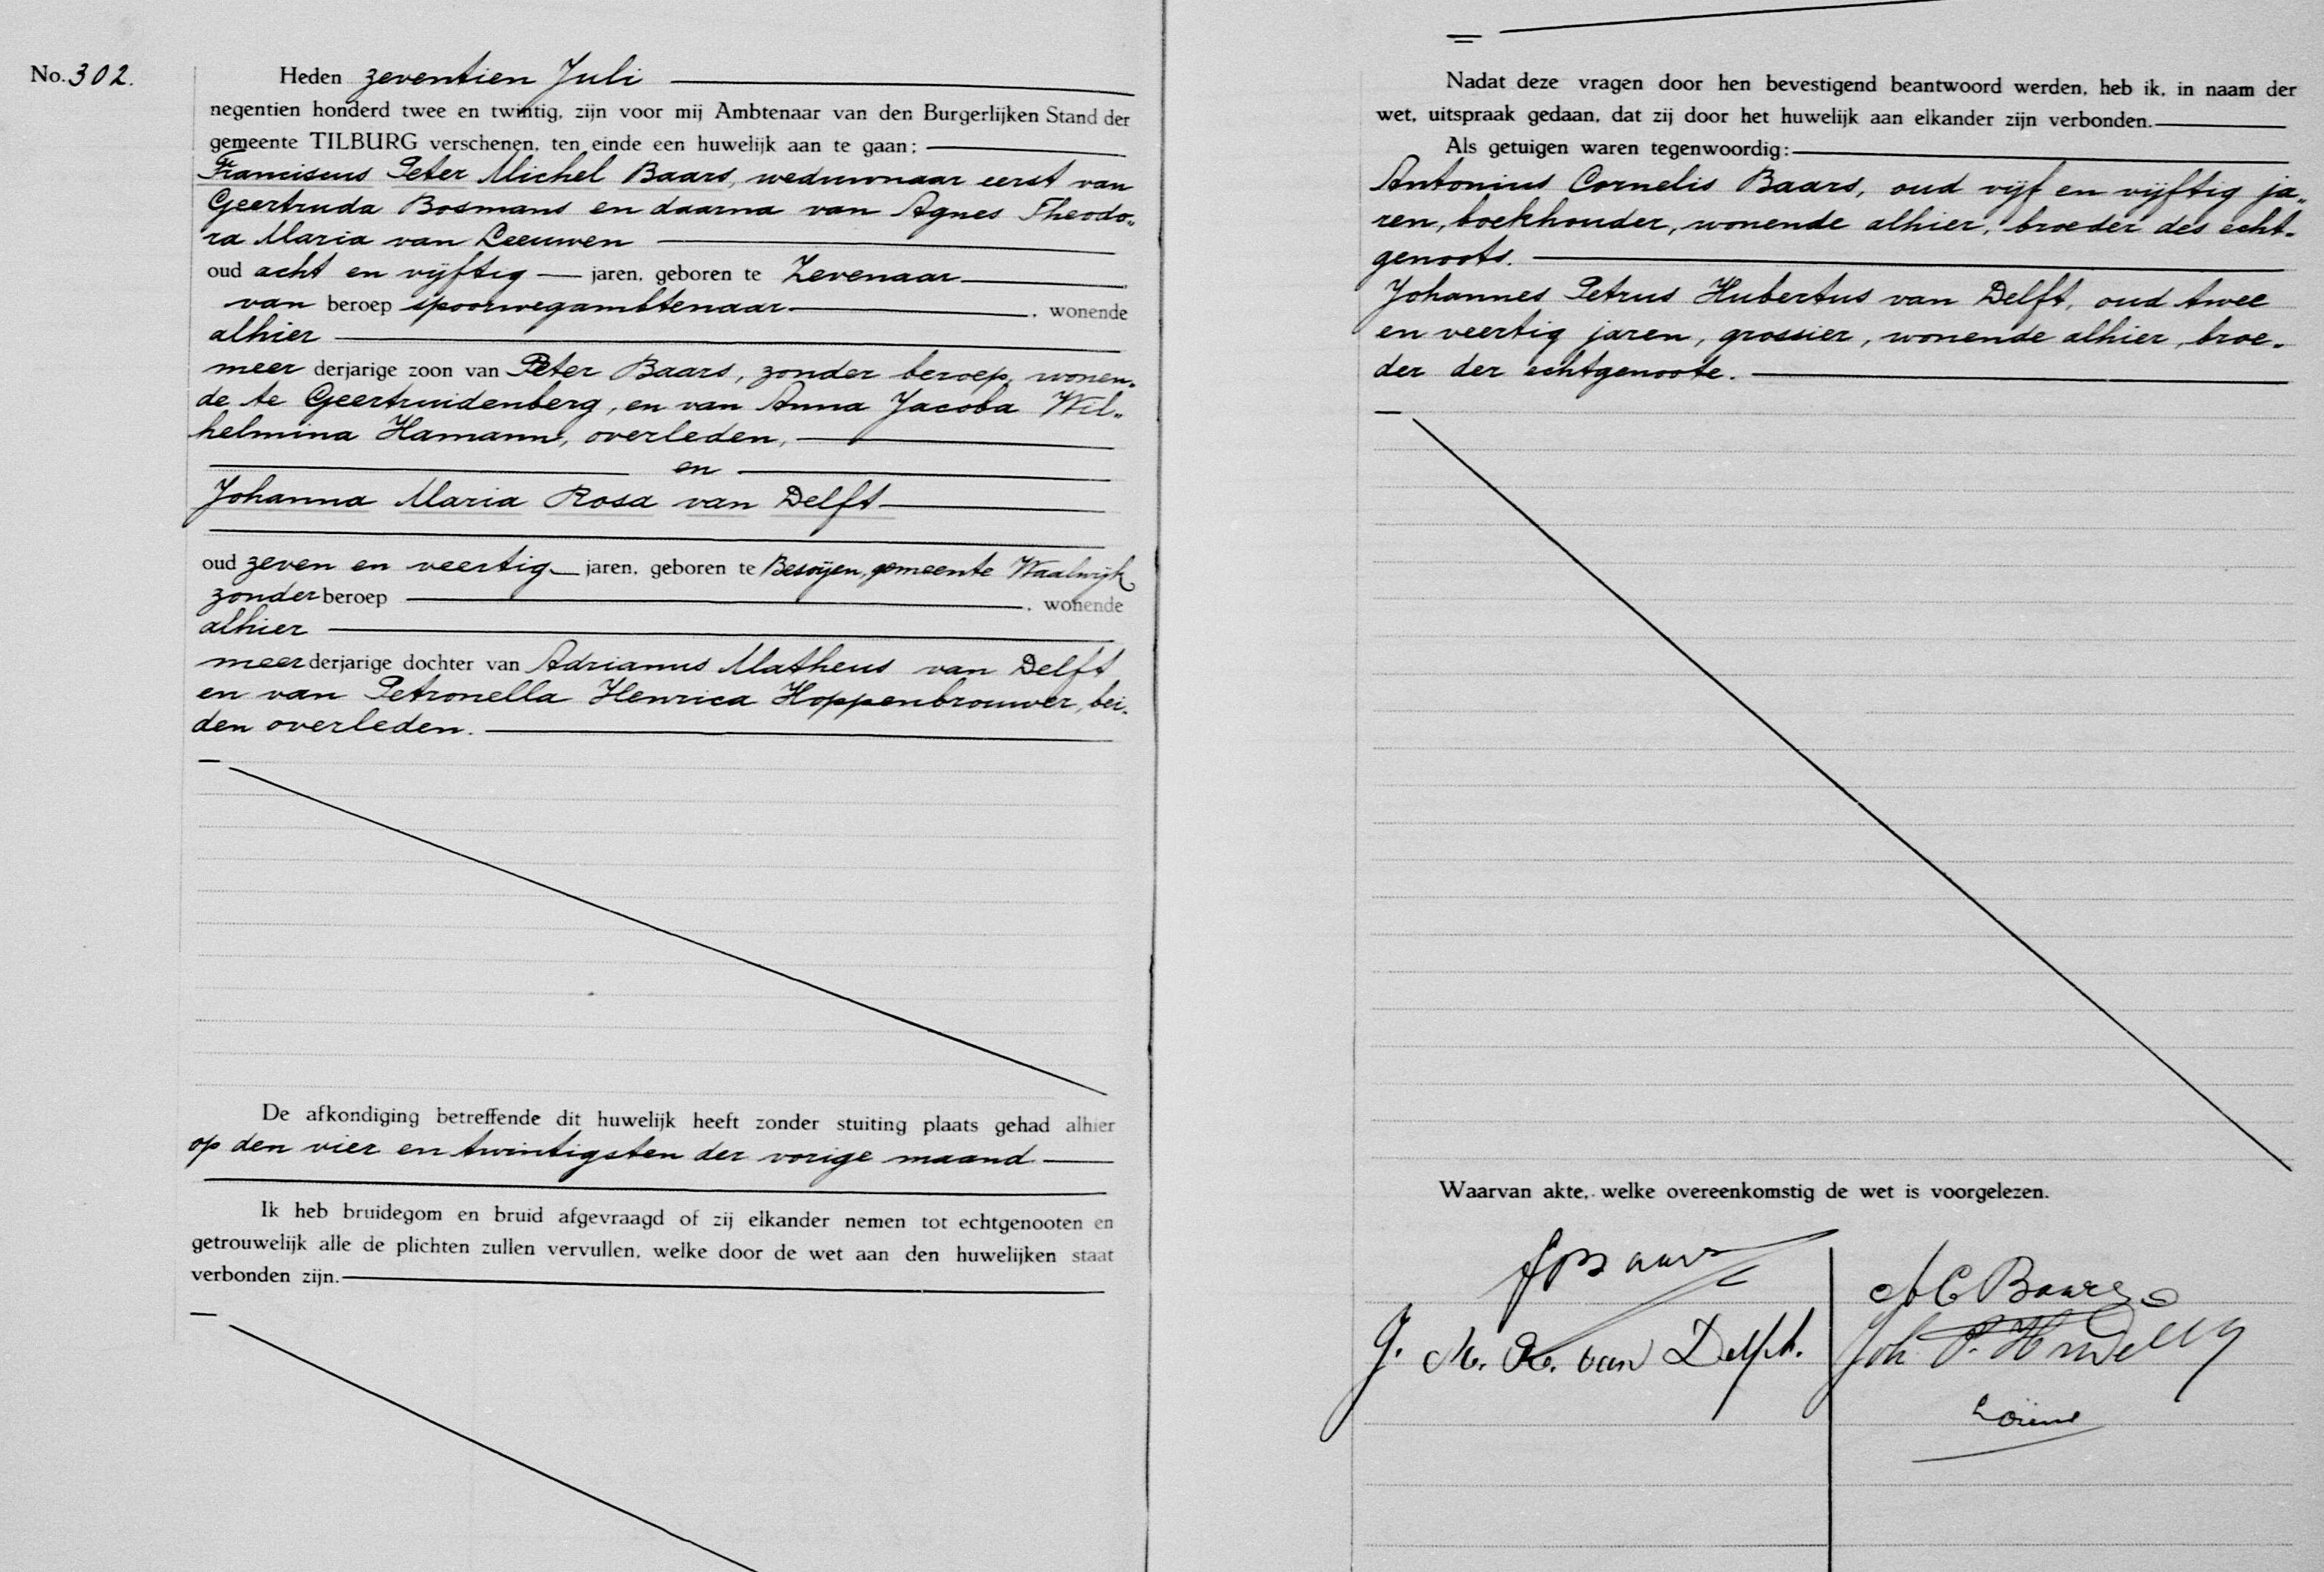 No. 302.
Heden zeventien Juli
negentien honderd twee en twintig, zijn voor mij Ambtenaar van den Burgerlijken Stand der
gemeente TILBURG verschenen, ten einde een huwelijk aan te gaan:
Franciscus Peter Michel Baars, weduwnaar eerst van
Geertruda Bosmans en daarna van Agnes Theodo„
ra Maria van Leeuwen
oud acht en vijftig jaren, geboren te Zevenaar
van beroep spoorwegambtenaar, wonende
alhier
meerderjarige zoon van Peter Baars, zonder beroep, wonen„
de te Geertruidenberg, en van Anna Jacoba Wil„
helmina Hamann, overleden,
en
Johanna Maria Rosa van Delft
oud zeven en veertig jaren, geboren te Besoijen, gemeente Waalwijk
zonder beroep, wonende
alhier
meerderjarige dochter van Adrianus Matheus van Delft
en van Petronella Henrica Hoppenbrouwer, bei„
den overleden.
De afkondiging betreffende dit huwelijk heeft zonder stuiting plaats gehad alhier
op den vier en twintigsten der vorige maand
Ik heb bruidegom en bruid afgevraagd of zij elkander nemen tot echtgenooten en
getrouwelijk alle de plichten zullen vervullen, welke door de wet aan den huwelijken staat
verbonden zijn.
Nadat deze vragen door hen bevestigend beantwoord werden, heb ik, in naam der
wet, uitspraak gedaan, dat zij door het huwelijk aan elkander zijn verbonden.
Als getuigen waren tegenwoordig:
Antonius Cornelis Baars, oud vijf en vijftig ja„
ren, boekhouder, wonende alhier, broeder des echt„
genoots.
Johannes Petrus Hubertus van Delft, oud twee
en veertig jaren, grossier, wonende alhier, broe„
der der echtgenoote.
Waarvan akte, welke overeenkomstig de wet is voorgelezen.
Baars
A C Baars
J. M. R. van Delft.
Joh. P. H. v Delft